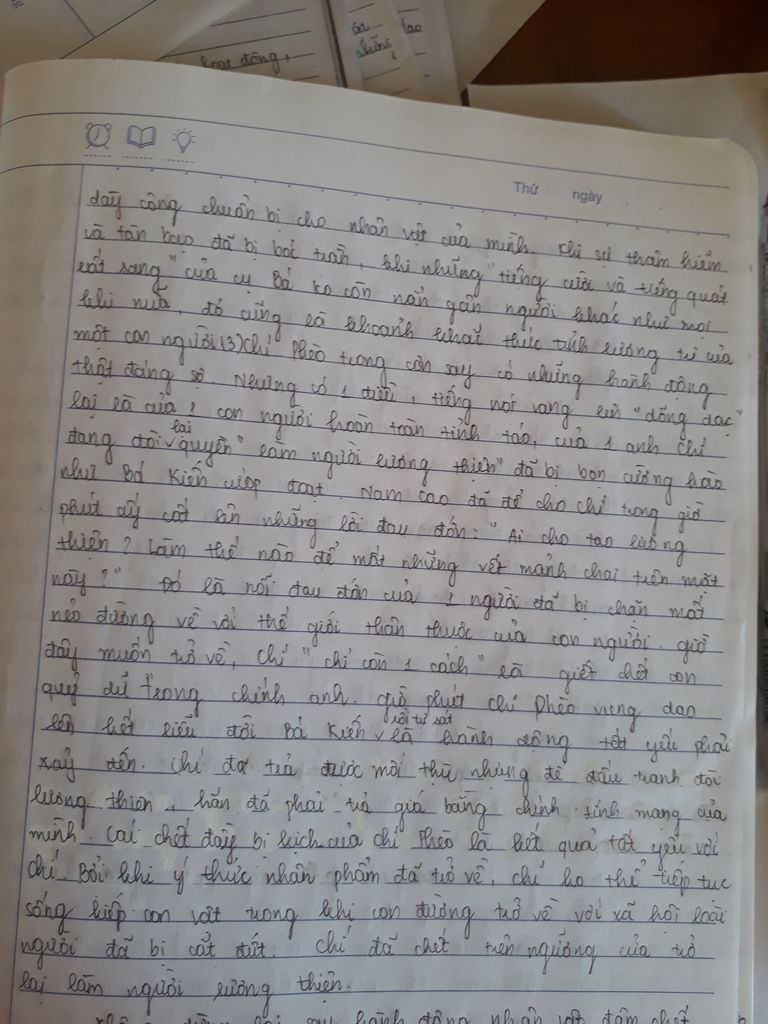 hoạt động,
ơn
những
lao
Thứ ngày
dày công chuẩn bị cho nhân vật của mình. Khi sự thâm hiểm
và tàn bạo đã bị bóc trần, khi những "tiếng cười và tiếng quát
rất sang" của cụ Bá ko còn nắn gân người khác như mọi
khi nữa, đó cũng là khoảnh khắc thức tỉnh lương tri của
một con người(3)Chí Phèo trong cơn say có những hành động
thật đáng sợ. Nhưng có 1 điều, tiếng nói vang lên "dõng dạc"
lại là của 1 con người hoàn toàn tỉnh táo, của 1 anh Chí
đang đòi lại quyền "làm người lương thiện" đã bị bọn cường hào
như Bá Kiến cướp đoạt. Nam Cao đã để cho Chí trong giờ
phút ấy cất lên những lời đau đớn: "Ai cho tao lương
thiện? Làm thế nào để mất những vết mảnh chai trên mặt
này?" Đó là nỗi đau đớn của 1 người đã bị chặn mất
nẻo đường về với thế giới thân thuộc của con người. giờ
đây muốn trở về, Chí "chỉ còn 1 cách" là giết chết con
quỷ dữ trong chính anh. giờ phút Chí Phèo vung dao
lên kết liễu đời Bá Kiến rồi tự sát là hành động tất yếu phải
xảy đến. Chí đã trả được mối thù nhưng để đấu tranh đòi
lương thiện, hắn đã phải trả giá bằng chính tính mạng của
mình. Cái chết đầy bi kịch của Chí Phèo là kết quả tất yếu với
Chí. Bởi khi ý thức nhân phẩm đã trở về, Chí ko thể tiếp tục
sống kiếp con vật trong khi con đường trở về với xã hội loài
người đã bị cắt đứt. Chí đã chết trên ngưỡng cửa trở
lại làm người lương thiện.
hành động nhân vật đâm chết